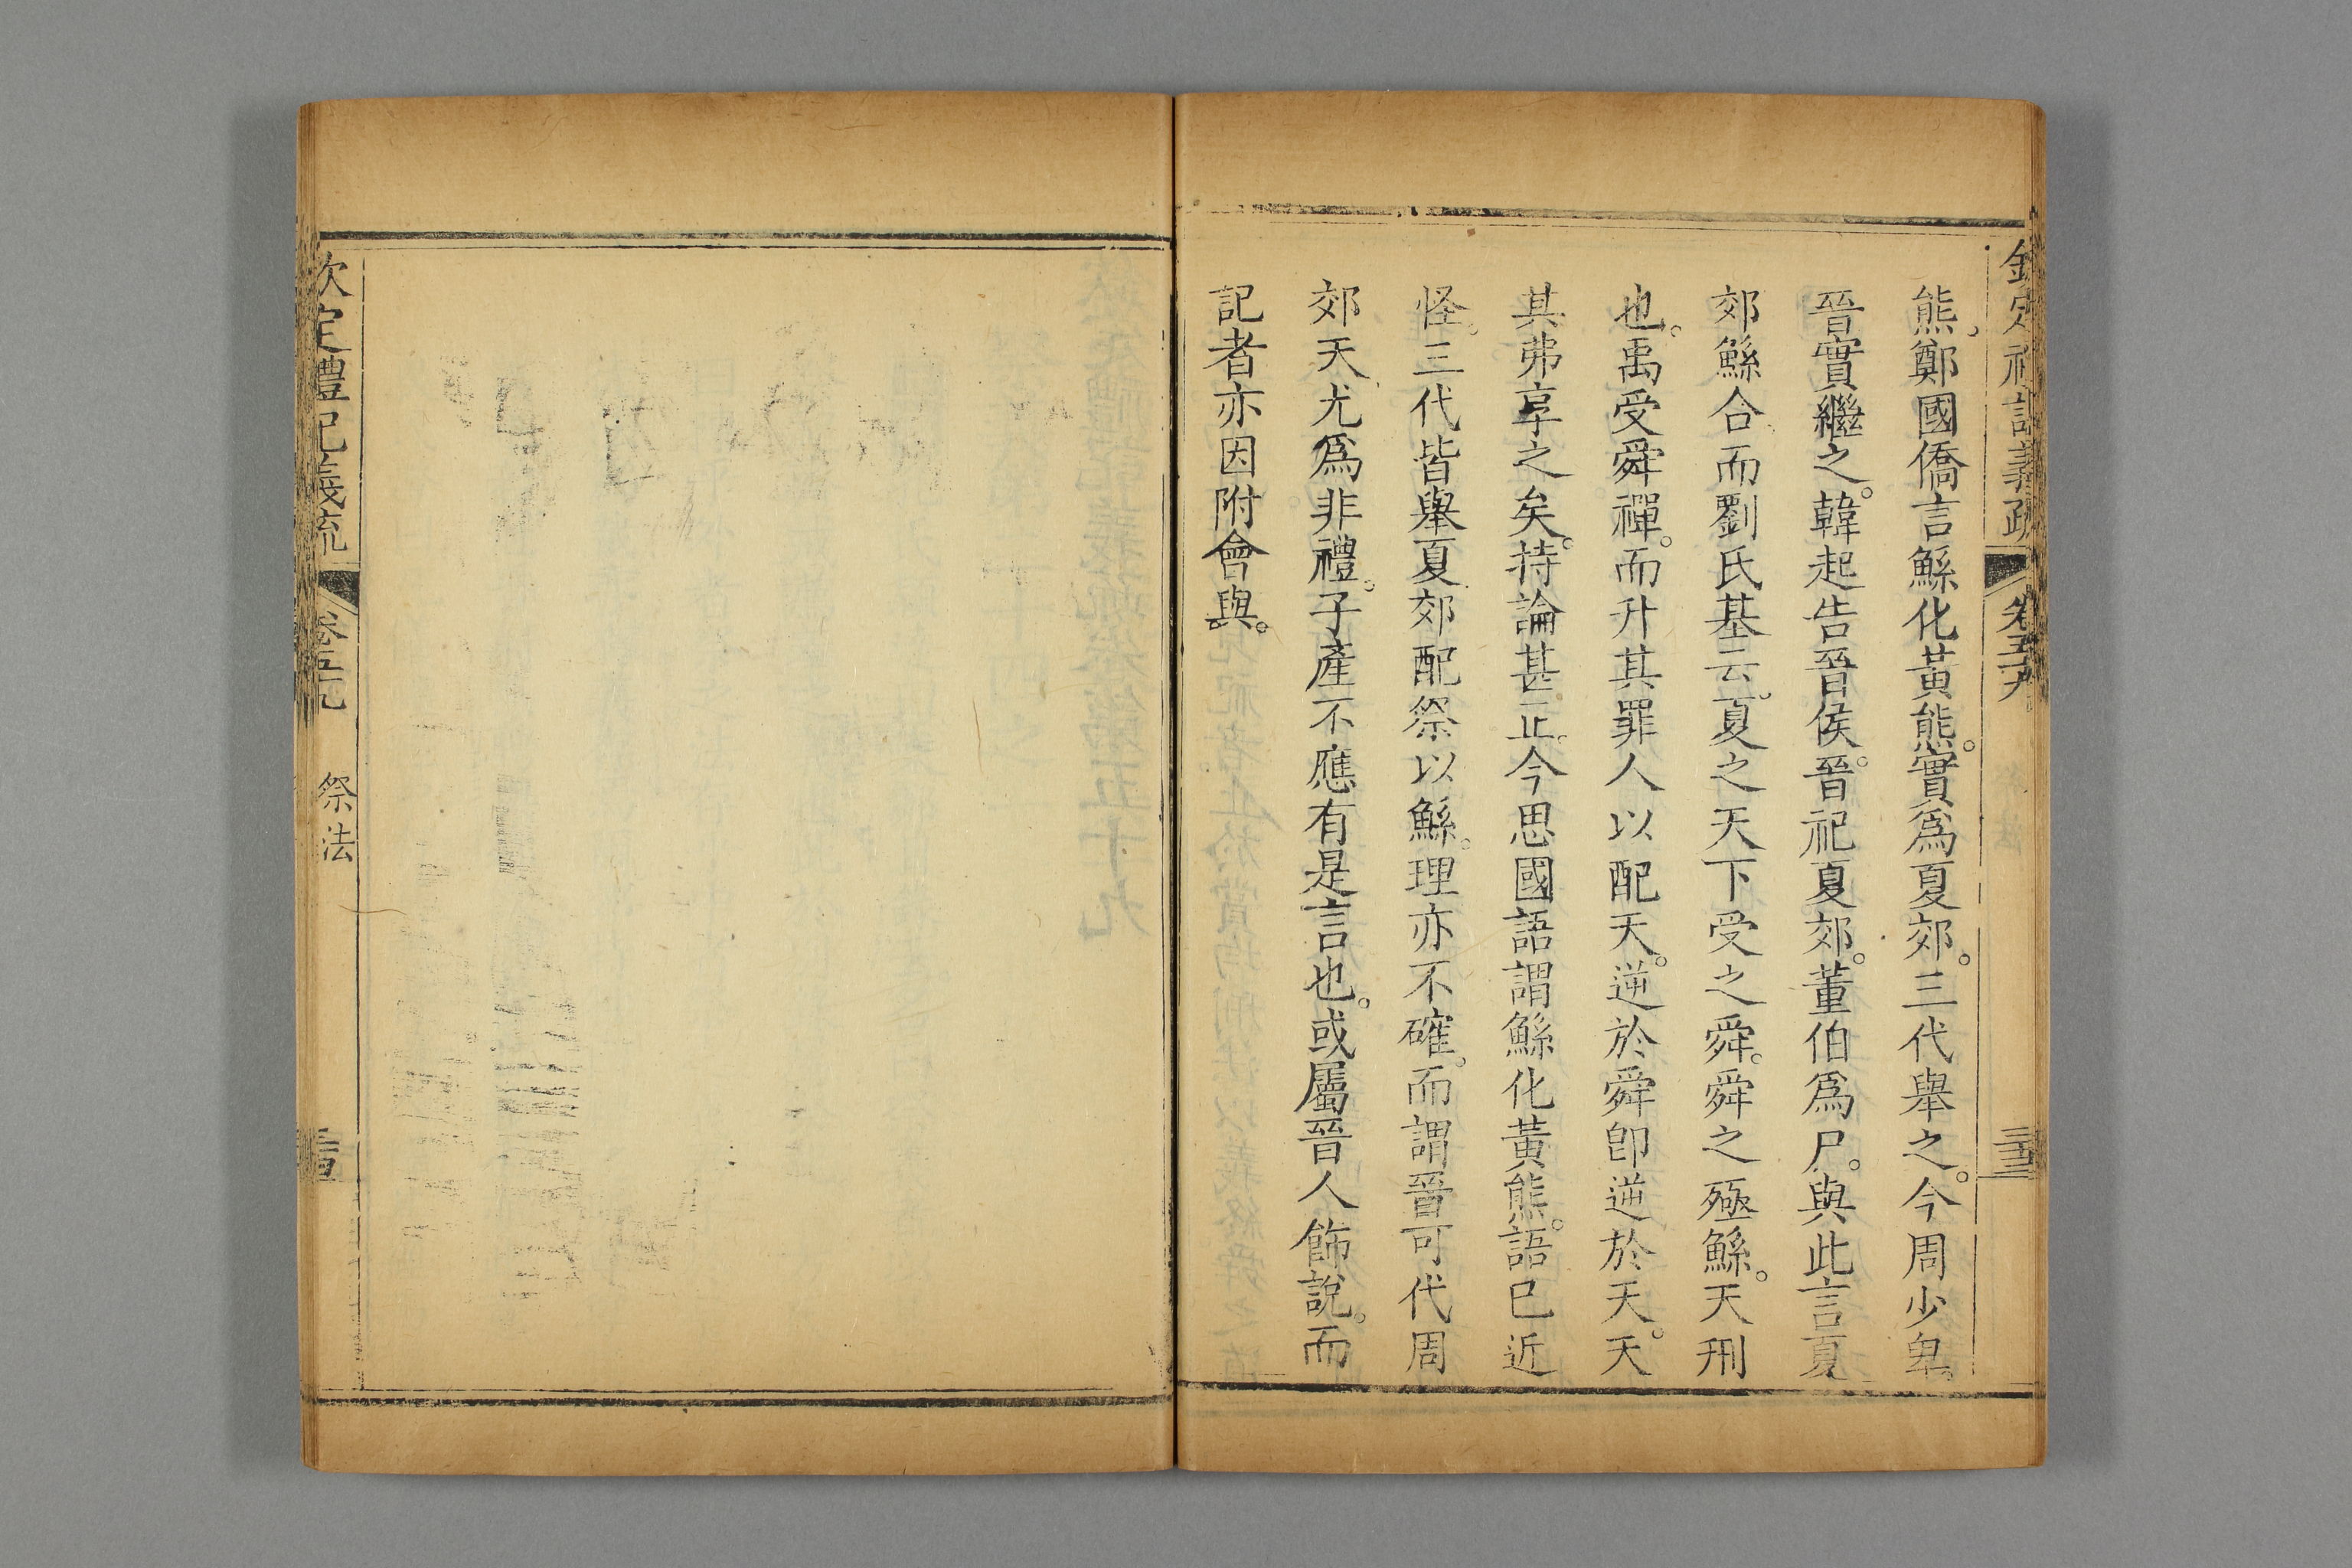 欽定禮記義疏 卷五十九
熊。鄭國僑言鯀化黃熊。實爲夏郊。三代舉之。今周少卑。
晉實繼之。韓起告晉侯。晉祀夏郊。董伯爲尸。與此言夏
郊鯀合。而劉氏基云。夏之天下受之舜。舜之殛鯀。天刑
也。禹受舜禪。而升其罪人以配天。逆於舜卽逆於天。天
其弗享之矣。持論甚正。今思國語謂鯀化黃熊。語已近
怪。三代皆舉夏郊配祭以鯀。理亦不確。而謂晉可代周
郊天。尤爲非禮。子產不應有是言也。或屬晉人飾說。而
記者亦因附會與。
欽定禮記義疏 卷五十九 祭法